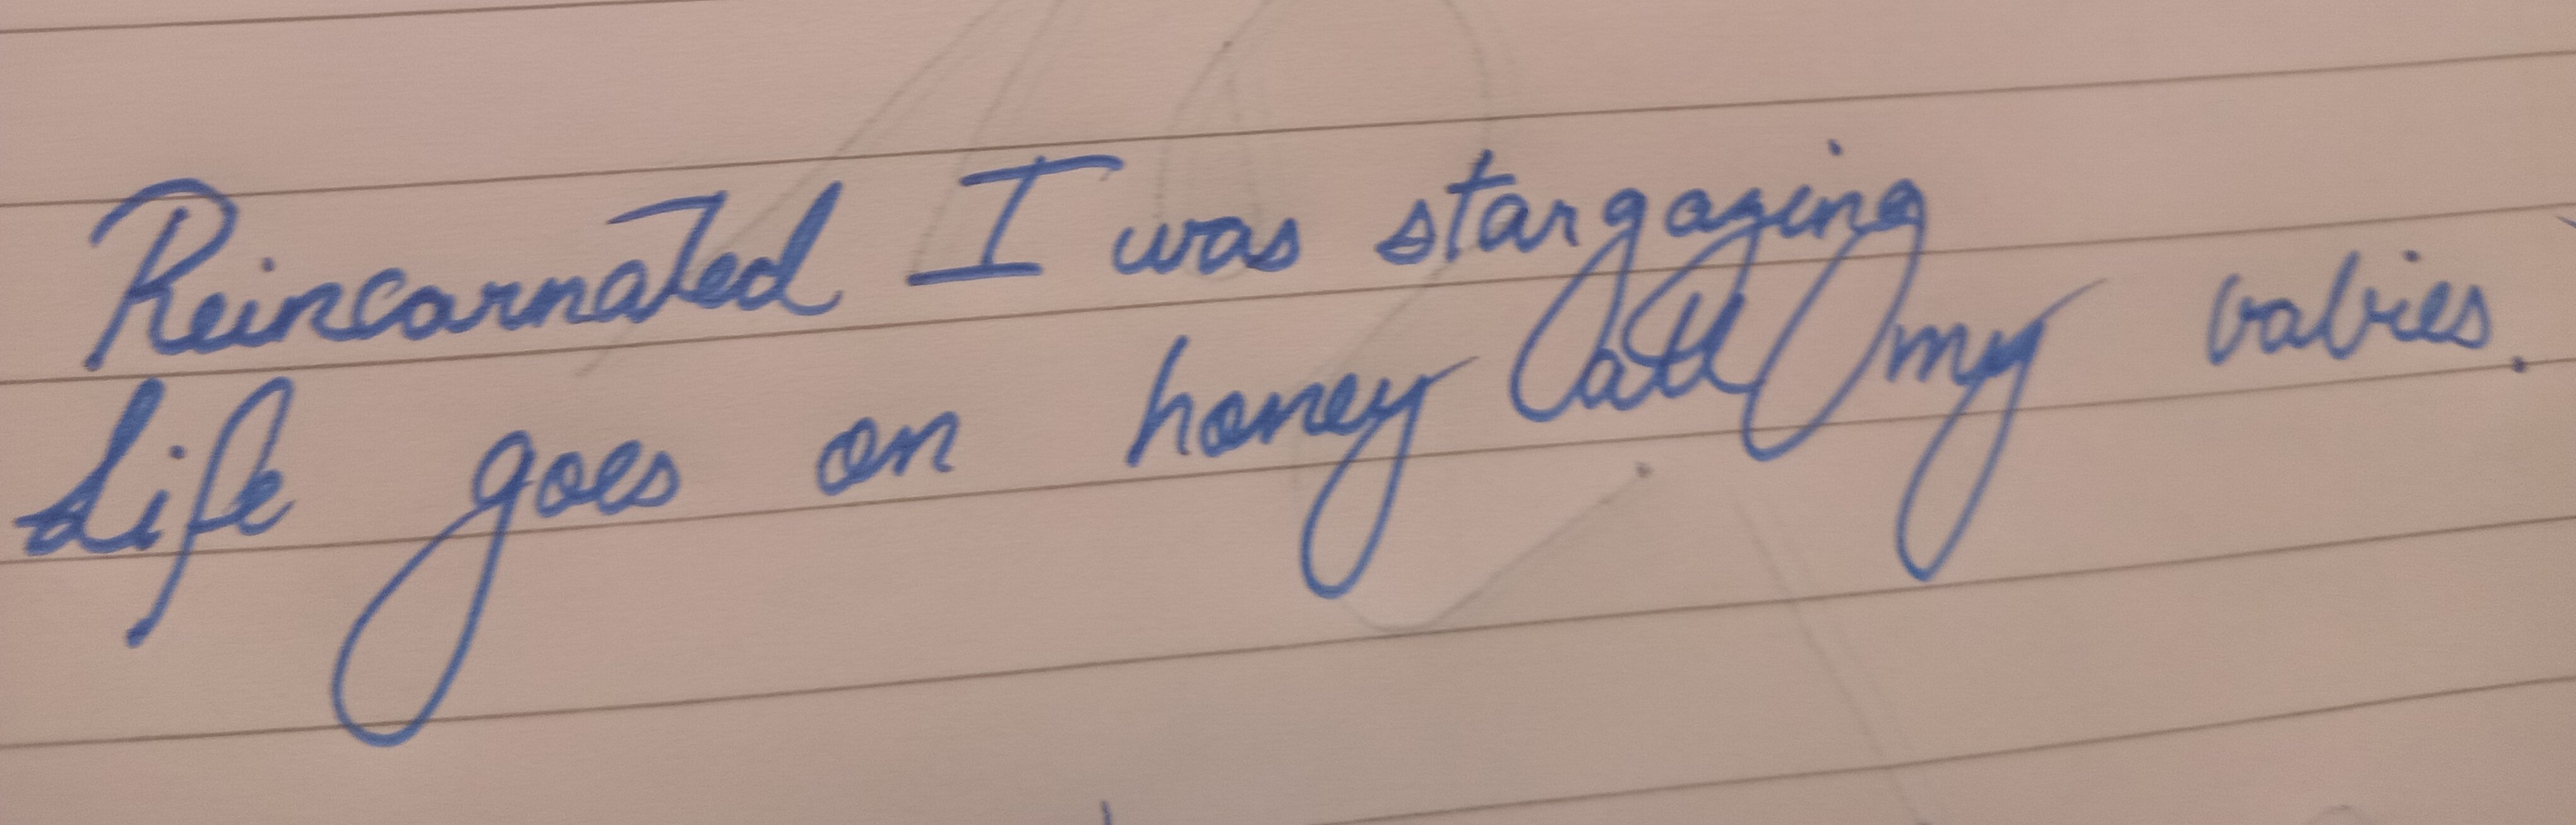 Reincarnated I was stargazing
Life goes on honey all my babies.